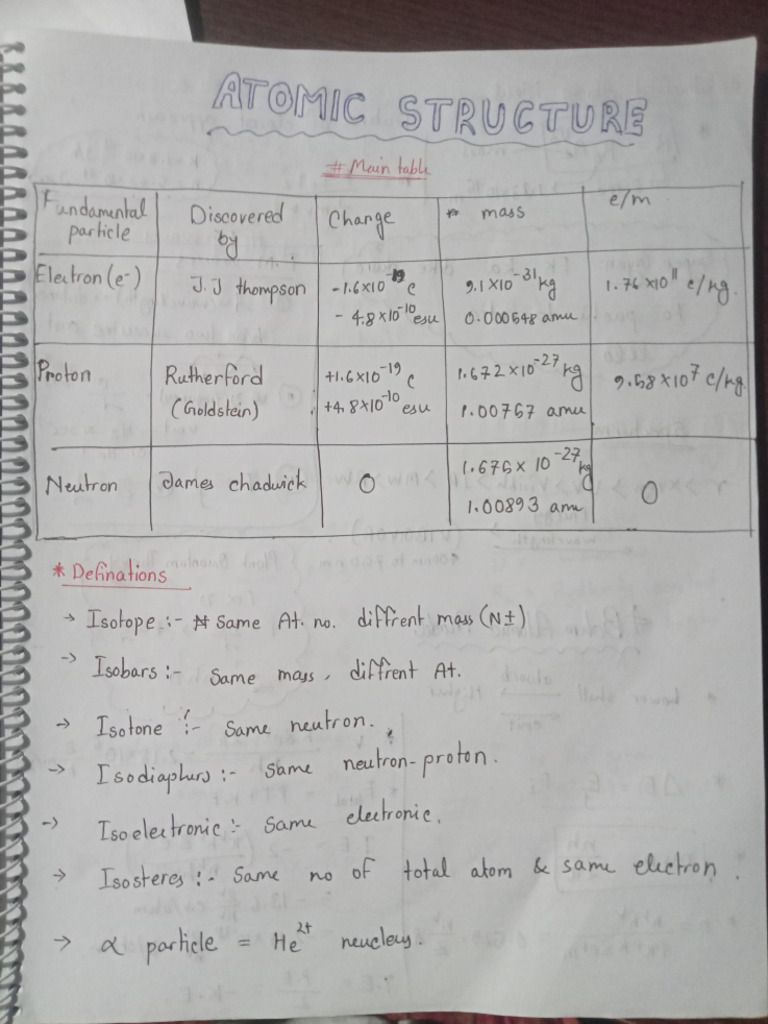 ATOMIC STRUCTURE
# Main table
Fundamental particle | Discovered by | Charge | mass | e/m
Electron (e⁻) | J.J thompson | -1.6×10⁻¹⁹ c | 9.1×10⁻³¹ kg | 1.76×10¹¹ c/kg.
- 4.8×10⁻¹⁰ esu | 0.000548 amu
Proton | Rutherford | +1.6×10⁻¹⁹ c | 1.672×10⁻²⁷ kg | 9.58×10⁷ c/kg
(Goldstein) | +4.8×10⁻¹⁰ esu | 1.00767 amu
Neutron | James chadwick | 0 | 1.675× 10⁻²⁷ kg | 0
1.00893 amu
* Definations
→ Isotope :- Same At. no. diffrent mass (N±)
→ Isobars :- Same mass, diffrent At.
→ Isotone :- Same neutron.
→ Isodiaphers :- Same neutron-proton.
→ Isoelectronic :- Same electronic.
→ Isosteres :- Same no of total atom & same electron.
→ α particle = He²⁺ neucleus.